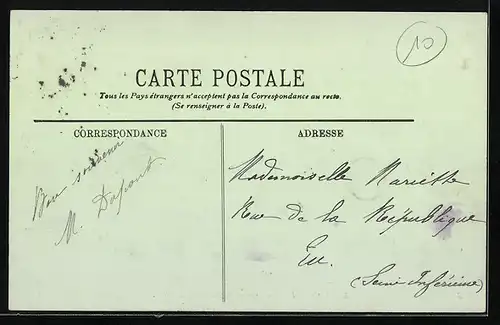 10
CARTE POSTALE
Tous les Pays étrangers n'acceptent pas la Correspondance au recto.
(Se renseigner à la Poste).
CORRESPONDANCE
ADRESSE
Bon souvenir
M. Dupont.
Mademoiselle Mariette
Rue de la République
Eu.
(Seine Inférieure)